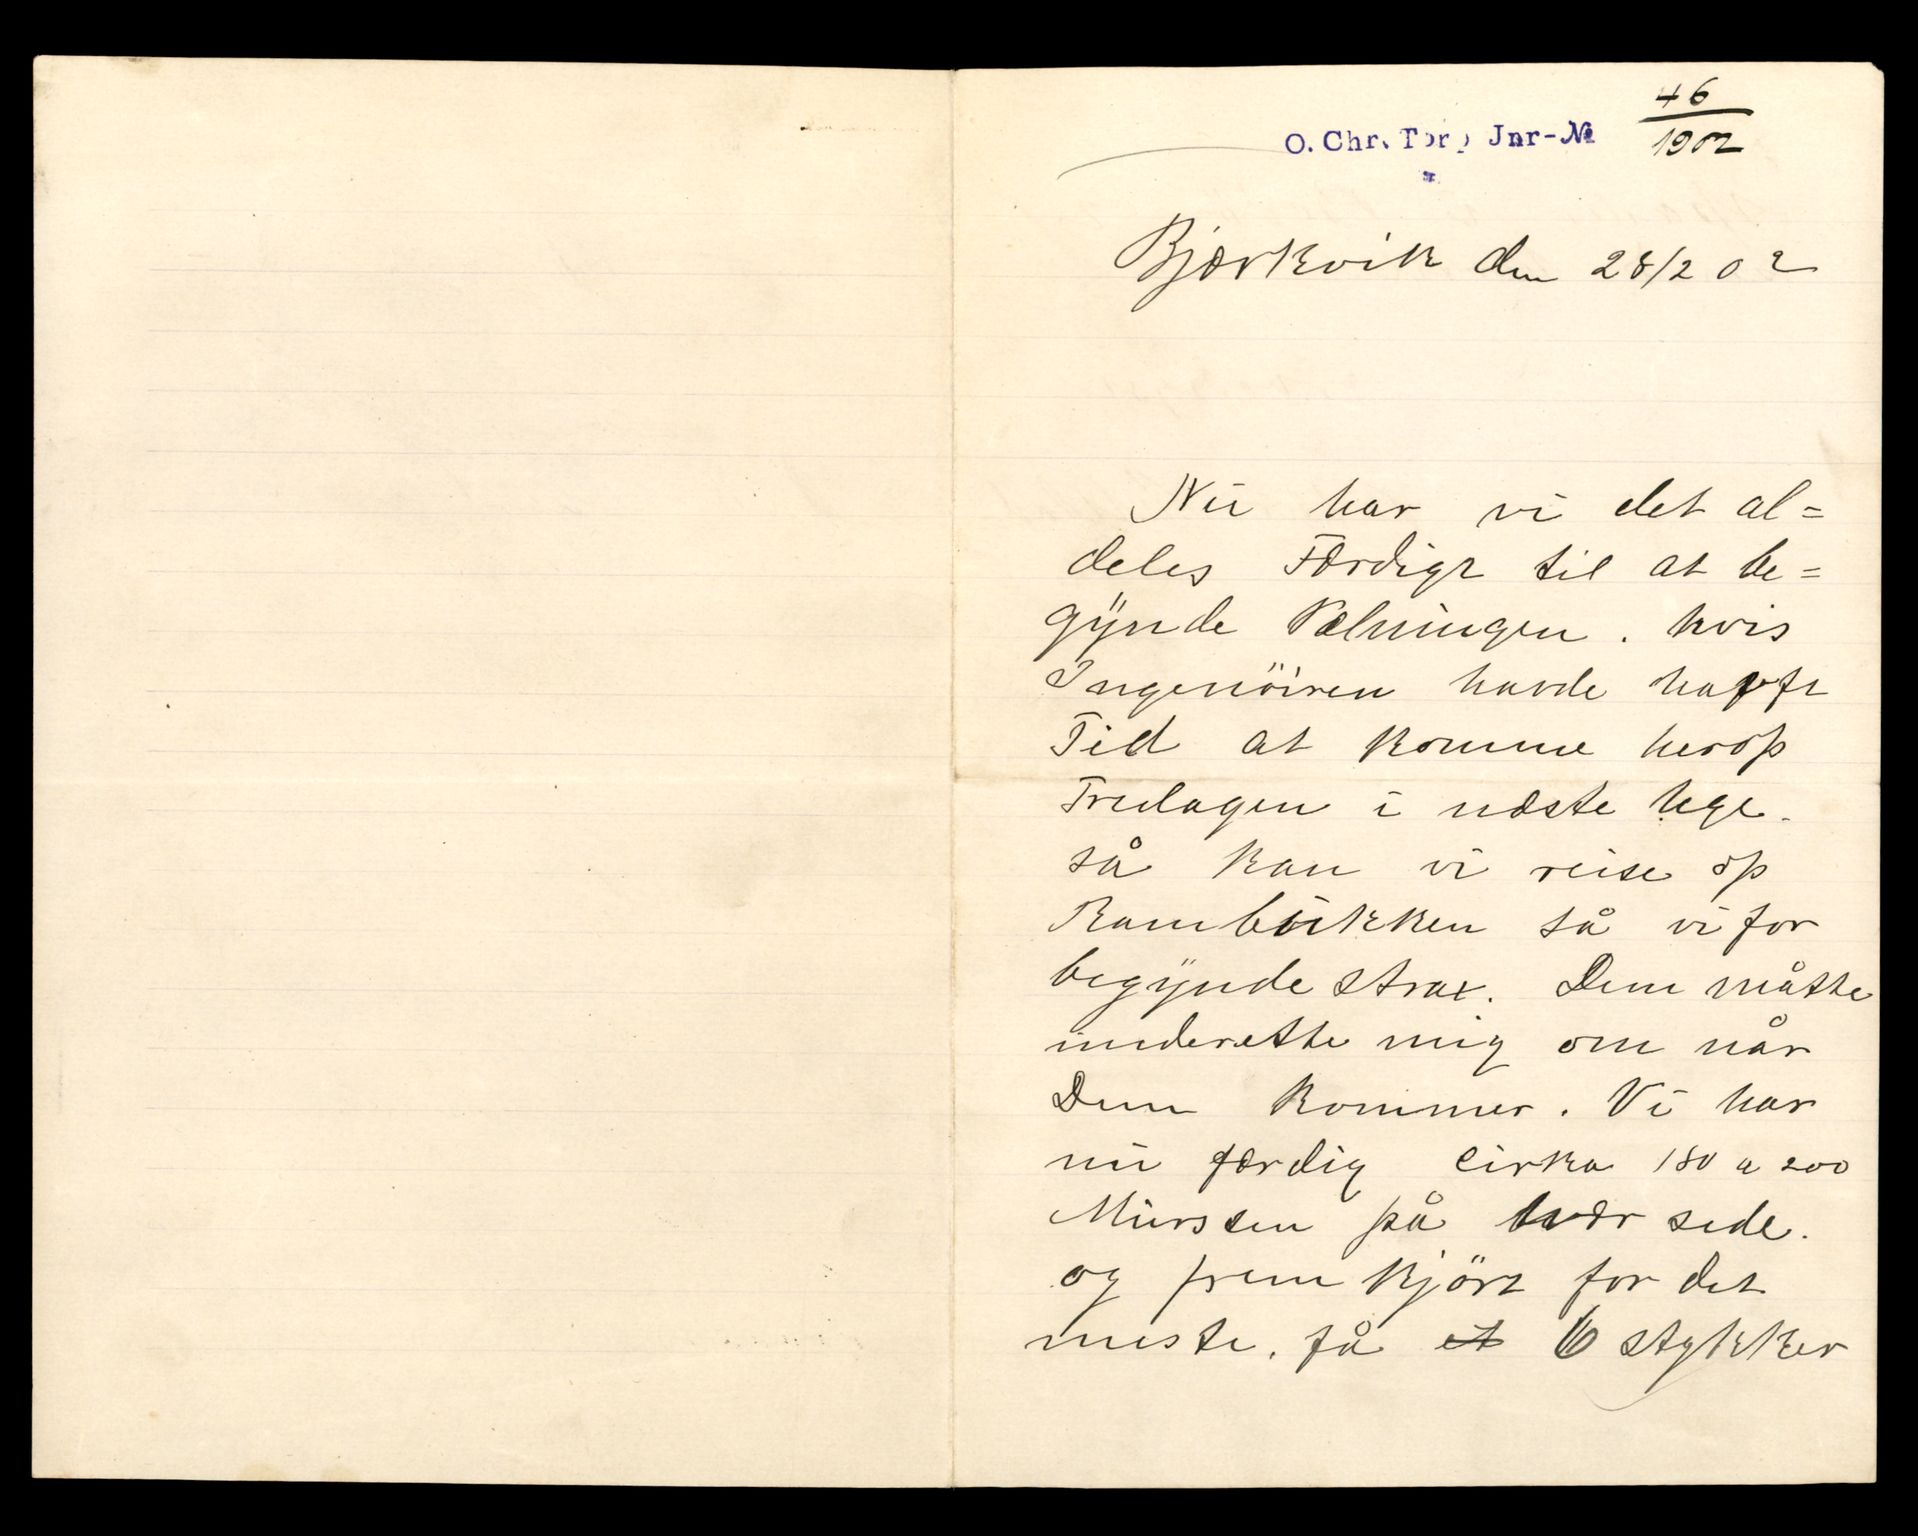 46
O. Chr. Torp Jnr-№
1902
Bjærkvik den 28/2 02
Nu har vi det al=
deles Færdigt til at be=
gynde Pælningen. hvis
Ingeniöiren havde hafft
Tid at komme herop
Fredagen i næste Uge.
så kan vi reise op
Rambukken så vi for
begynde strax. Dem måtte
underette mig om når
Dem kommer. Vi har
nu færdig Cirka 180 a 200
Mursten på hvær side.
og frem kjört for det
meste. få et 6 stykker